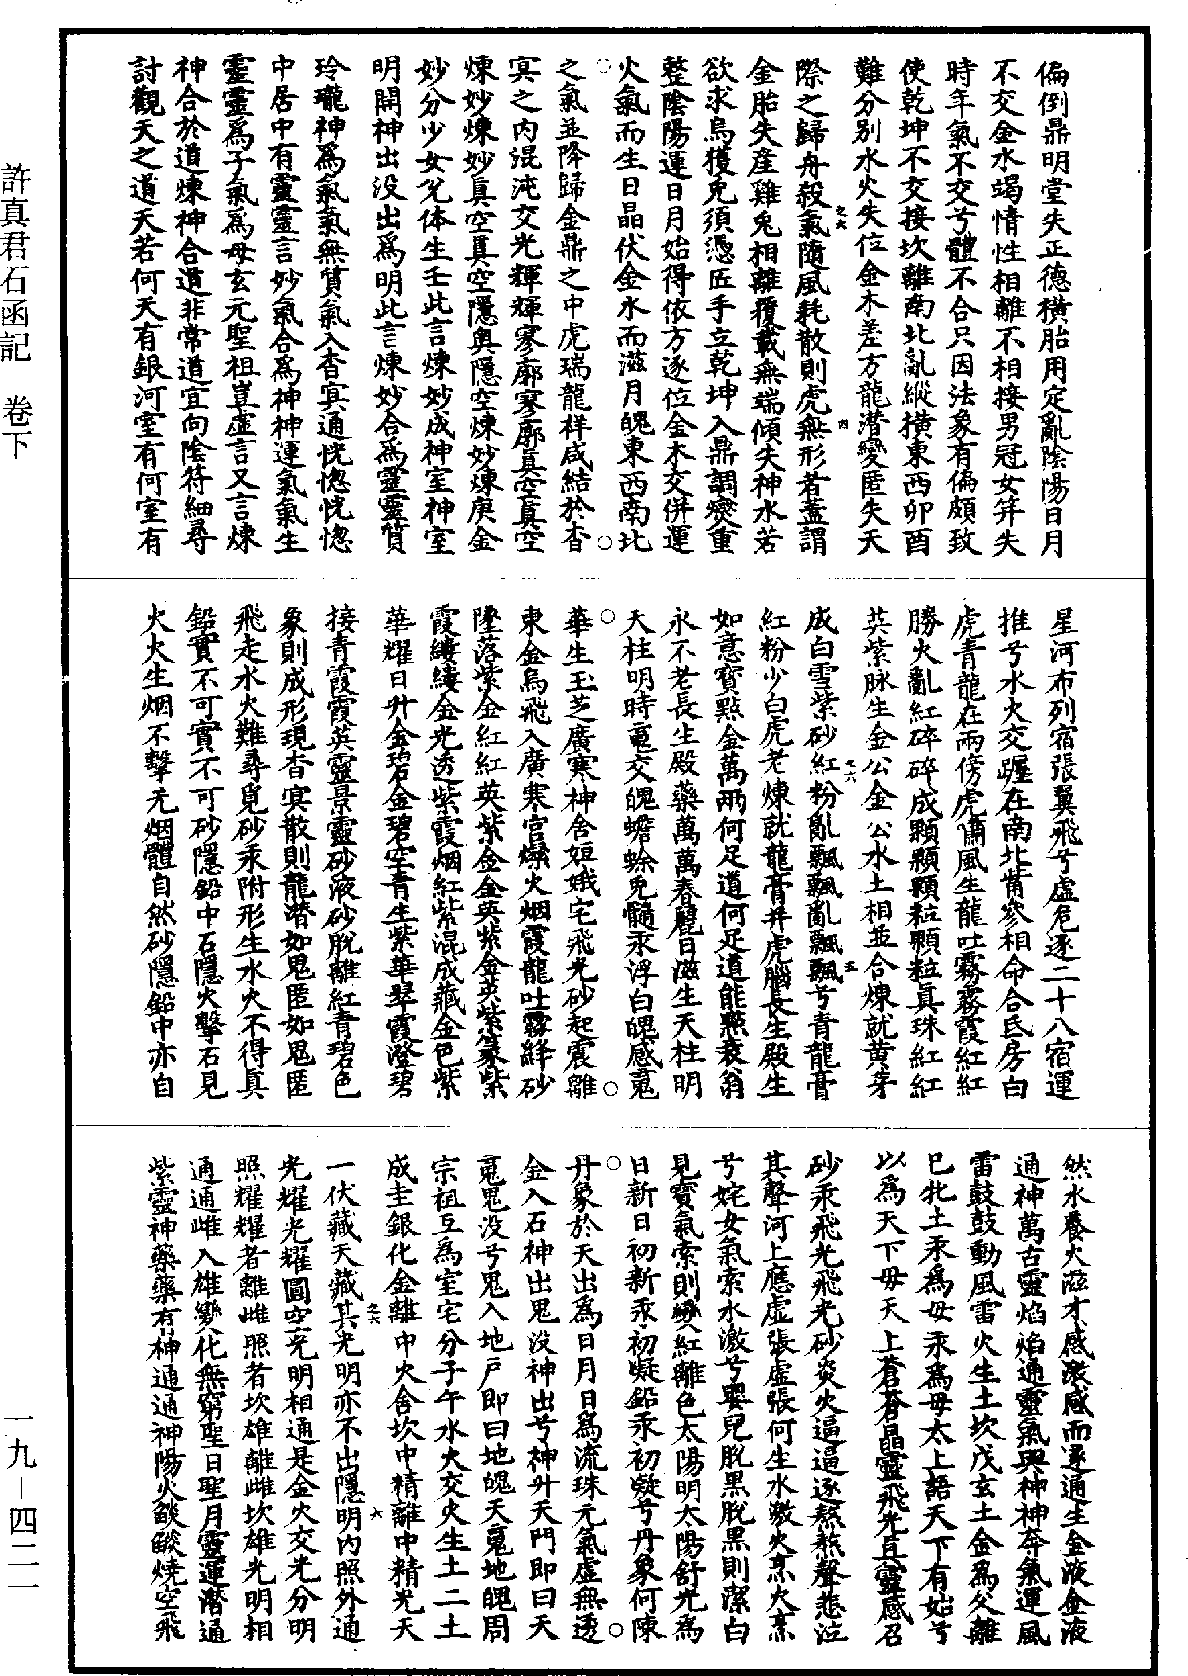 偏倒鼎明堂失正德橫胎用定亂陰陽日月
不交金水竭情性相離不相接男冠女笄失
時年氣不交兮體不合只因法象有偏頗致
使乾坤不交接坎離南北亂縱橫東西卯酉
難分別水火失位金木差方龍潛變匿失天
際之歸舟殺氣隨風耗散則虎無形若蓋謂
金胎失產雞兔相離覆載無端傾失神水若
欲求烏獲兔須憑匠手立乾坤入鼎調燮重
整陰陽運日月始得依方逐位金木交併運
火氣而生日晶伏金水而滋月魄東西南北
之氣並降歸金鼎之中虎瑞龍祥咸結於杳
冥之內混沌交光輝輝寥廓寥廓真空真空
煉妙煉妙真空真空隱奧隱空煉妙煉庚金
妙分少女兌体生壬此言煉妙成神室神室
明開神出没出爲明此言煉妙合爲靈靈質
玲瓏神爲氣氣無質氣入杳冥通恍惚恍惚
中居中有靈靈言妙氣合爲神神運氣氣生
靈靈爲子氣爲母玄元聖祖豈虛言又言煉
神合於道煉神合道非常道宜向陰符細尋
討觀天之道天若何天有銀河室有何室有
星河布列宿張翼飛兮虛危逐二十八宿運
推兮水火交躔在南北觜參相命合氐房白
虎青龍在兩傍虎嘯風生龍吐霧霧霞紅紅
勝火亂紅碎碎成顆顆顆粒顆粒真珠紅紅
英紫脉生金公金公水土相並合煉就黄芽
成白雪紫砂紅粉亂飄飄亂飄飄兮青龍膏
紅粉少白虎老煉就龍膏并虎腦長生殿生
如意寶點金萬兩何足道何足道能點衰翁
永不老長生殿藥萬萬春麗日滋生天柱明
天柱明時䰟交魄蟾蜍兔髓汞浮白魄感䰟
華生玉芝廣寒神舍姮娥宅飛光砂起震離
東金烏飛入廣寒宮爍火烟霞龍吐霧絳砂
墜落紫金紅紅英紫金金英紫金英紫篆紫
霞縷縷金光透紫霞烟紅紫混成藏金色紫
華耀日升金碧金碧空青生紫華翠霞澄碧
接青霞霞英靈景靈砂液砂脫離紅青碧色
象則成形現杳冥散則龍潛如鬼匿如鬼匿
飛走水火難尋覓砂汞附形生水火不得真
鉛實不可實不可砂隱鉛中石隱火擊石見
火火生烟不擊无烟體自然砂隱鉛中亦自
然水養火滋才感激感而遂通生金液金液
通神萬古靈焰焰通靈氣與神神奔氣運風
雷鼓鼓動風雷火生土坎戊玄土金爲父離
巳牝土汞爲母汞爲母太上語天下有始兮
以爲天下母天上蒼蒼晶靈飛光且靈感召
砂汞飛光飛光砂炎火逼逼逐熬熬聲悲泣
其聲河上應虛張虛張何生水激火烹火烹
兮姹女氣索水激兮嬰兒脫黒脫黒則潔白
見寶氣索則變紅離色太陽明太陽舒光爲
日新日初新汞初凝鉛汞初凝兮丹象何陳
丹象於天出爲日月日爲流珠元氣虛無透
金入石神出鬼没神出兮神升天門即曰天
䰟鬼没兮鬼入地戸即曰地魄天䰟地魄周
宗祖互爲室宅分子午水火交火生土二土
成圭銀化金離中火含坎中精離中精光天
一伏藏天藏其光明亦不出隱明內照外通
光耀光耀圓空光明相通是金火交光分明
照耀耀者離雌照者坎雄離雌坎雄光明相
通通雌入雄變化無窮聖日聖月靈運潛通
紫靈神藥藥有神通通神陽火燄燄燒空飛
許真君石函記　卷下
一九—四二一